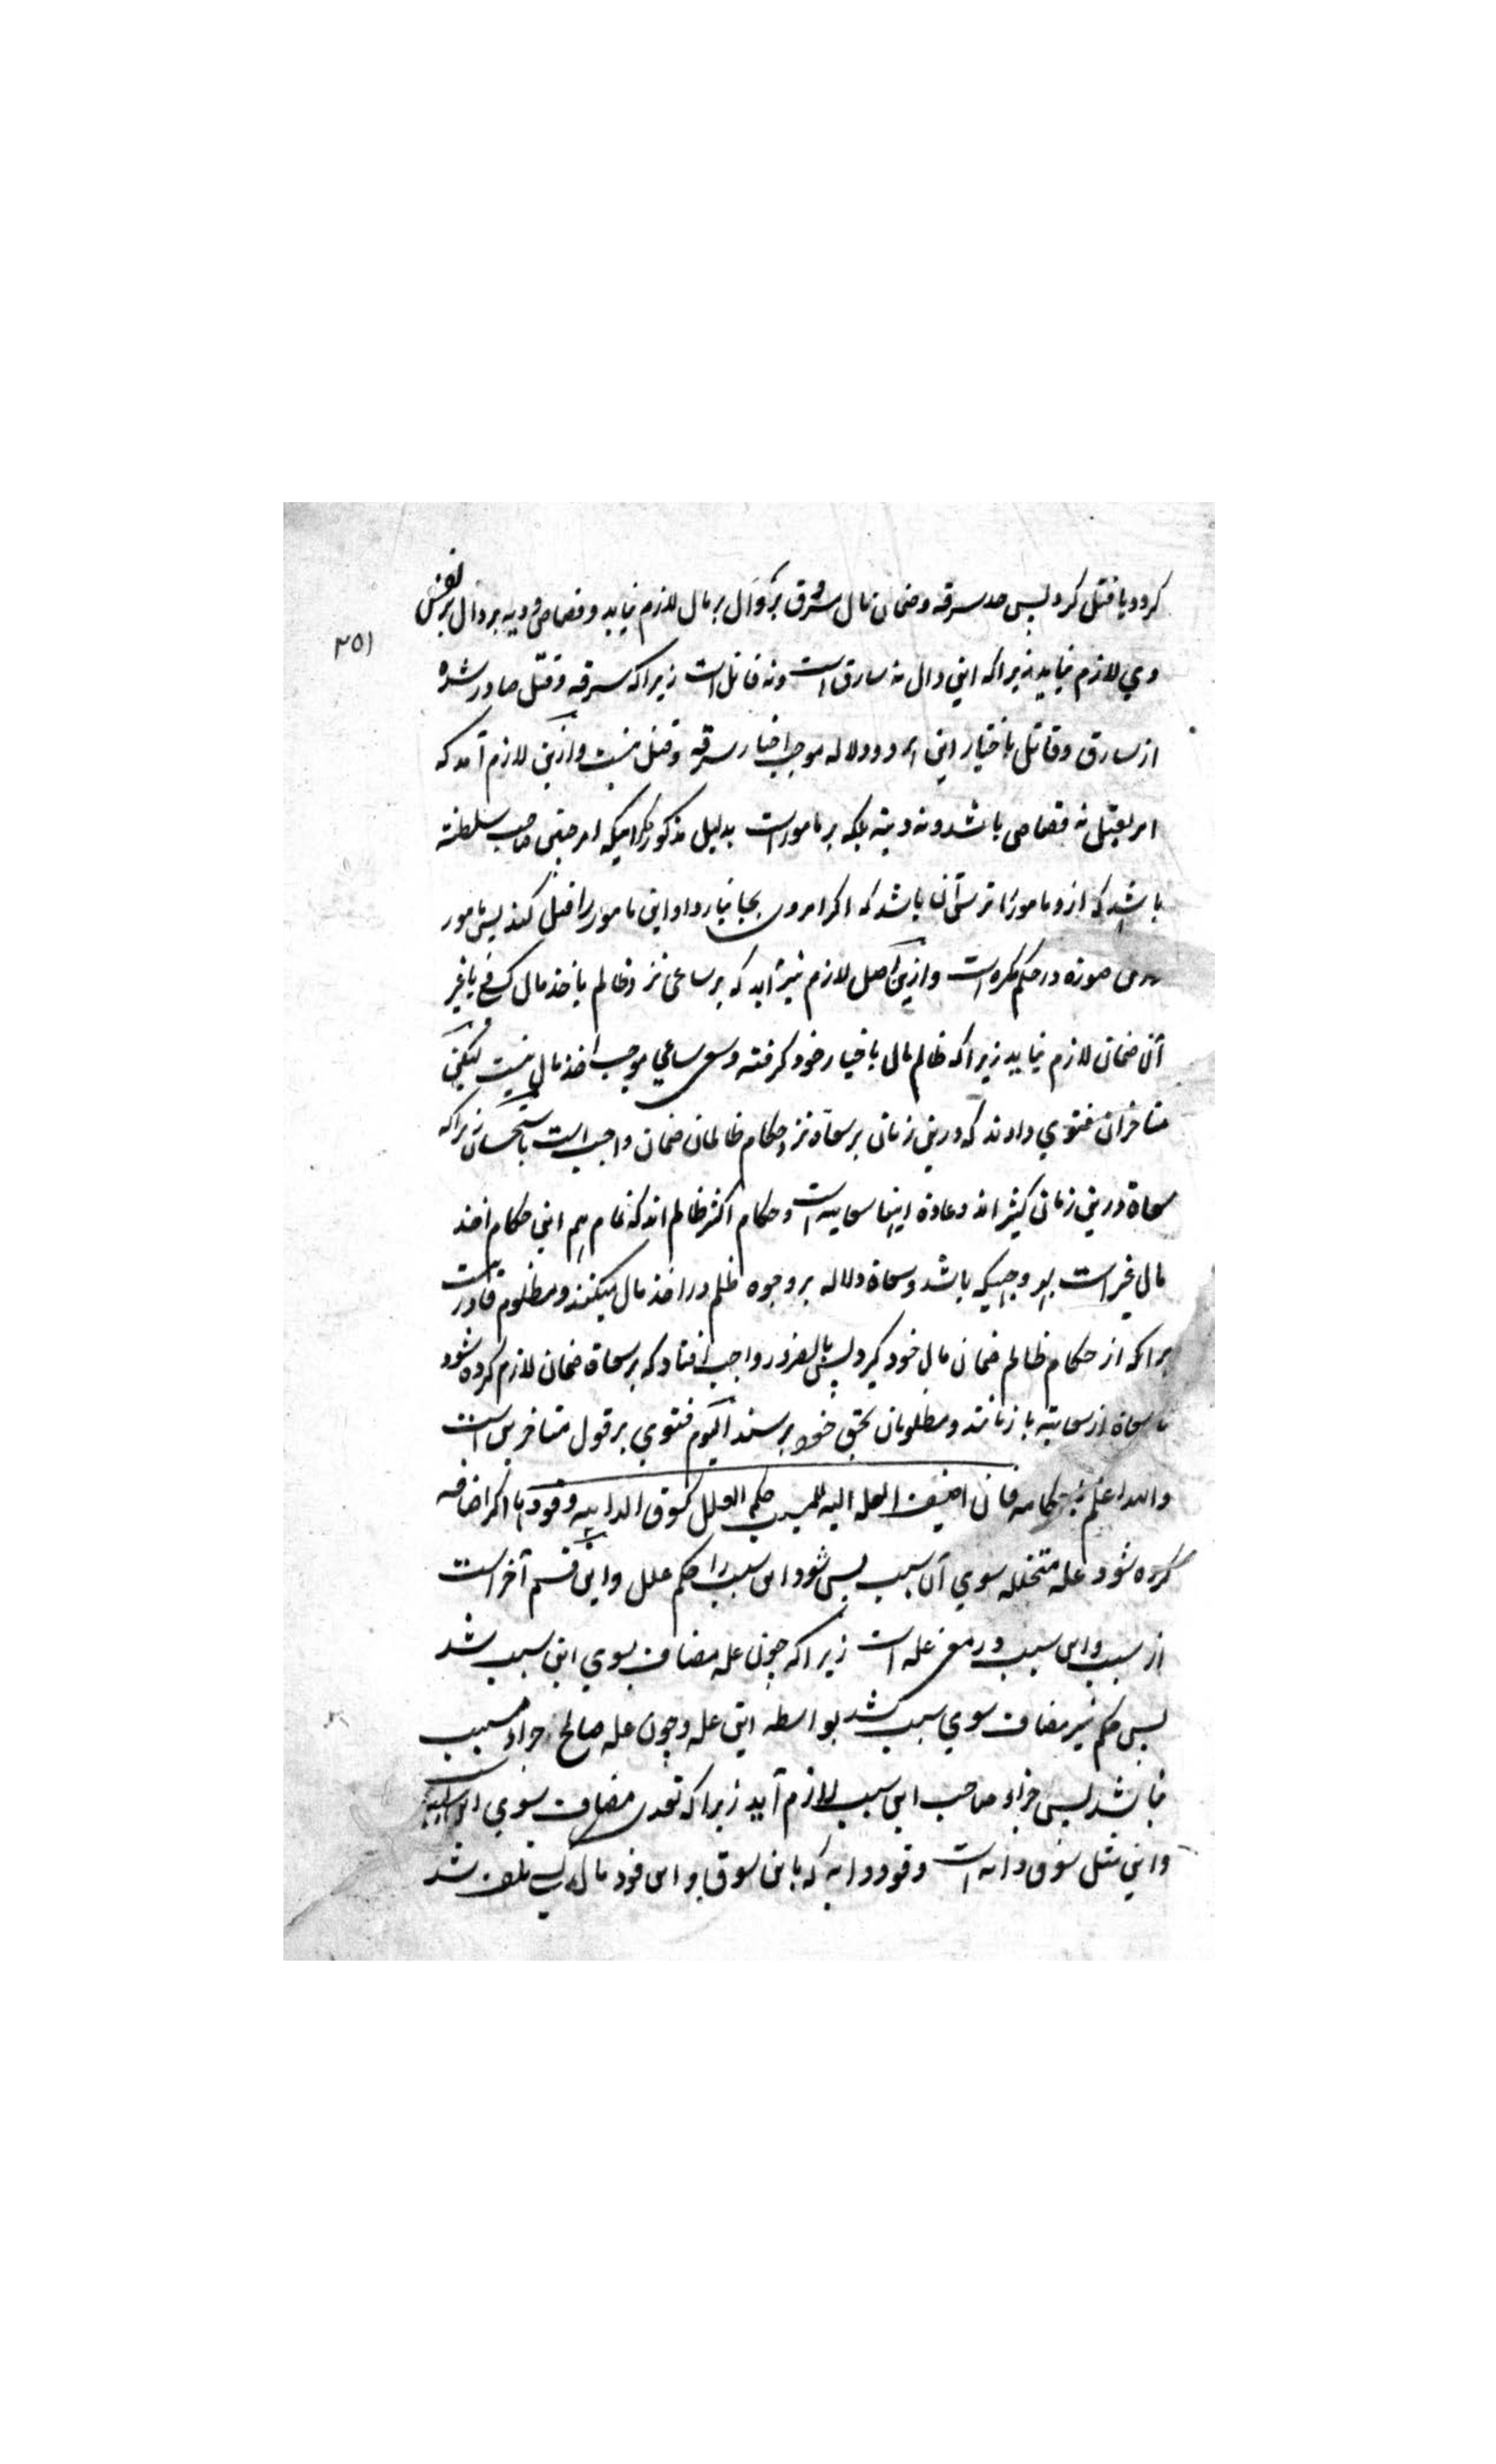 کرد و یا قتل کرد پس حد سرقه و ضمان مال مسروق بر دال بر مال لازم نیاید و قصاص و دیه بر دال بر نفس
۲۵۱
وی لازم نیاید زیرا که این دال نه سارق است و نه قاتل است زیرا که سرقه و قتل صادر شده
از سارق و قاتل باختیار این هر دو و دلاله موجب اختیار سرقه و قتل نیست و ازین لازم آمد که
امر بقتل نه قصاص باشد و نه دیته بلکه بر مامور است بدلیل مذکور مگر آنیکه امر چنین صاحب سلطنته
باشد که ازو مامور را ترس آن باشد که اگر امر وی بجا نیارد او این مامور را قتل کند پس مامور
درین صورة در حکم مکره است و ازین اصل لازم نیز آید که بر ساعی نزد ظالم باخذ مال کسی یا غیر
آن ضمان لازم نیاید زیرا که ظالم مال باختیار خود گرفته و سعی ساعی موجب اخذ مال نیست لیکن
متاخران فتوی دادند که درین زمان بر سعاة نزد حکام ظالمان ضمان واجب است باستحسان زیرا که
سعاة درین زمان کثیر اند و عادة اینها سعایه است و حکام اکثر ظالم اند که تمام هم این حکام اخذ
مال غیر است بهر وجهیکه باشد و سعاة دلاله بر وجوه ظلم در اخذ مال میکنند و مظلوم قادر نیست
برآنکه از حکام ظالم ضمان مال خود گیرد پس بالضرور واجب افتاد که بر سعاة ضمان لازم کرده شود
تا سعاة از سعایته باز مانند و مظلومان بحق خود برسند الیوم فتوی بر قول متاخرین است
والله اعلم باحکامه فان اضیف العله الیه للسبب حکم العلل کسوق الدابه و قودها اگر اضافه
کرده شود عله متخلله سوی آن سبب پس شود این سبب را حکم علل و این قسم آخر است
از سبب و این سبب در معنی عله است زیرا که چون عله مضاف بسوی این سبب شد
پس حکم نیز مضاف سوی سبب شد بواسطه این عله و چون عله صالح جزاء مسبب
نباشد پس جزاء صاحب این سبب لازم آید زیرا که تعدی مضاف سوی این سبب
و این مثل سوق دابه است و قود دابه که باین سوق و این قود مال کسی تلف شد